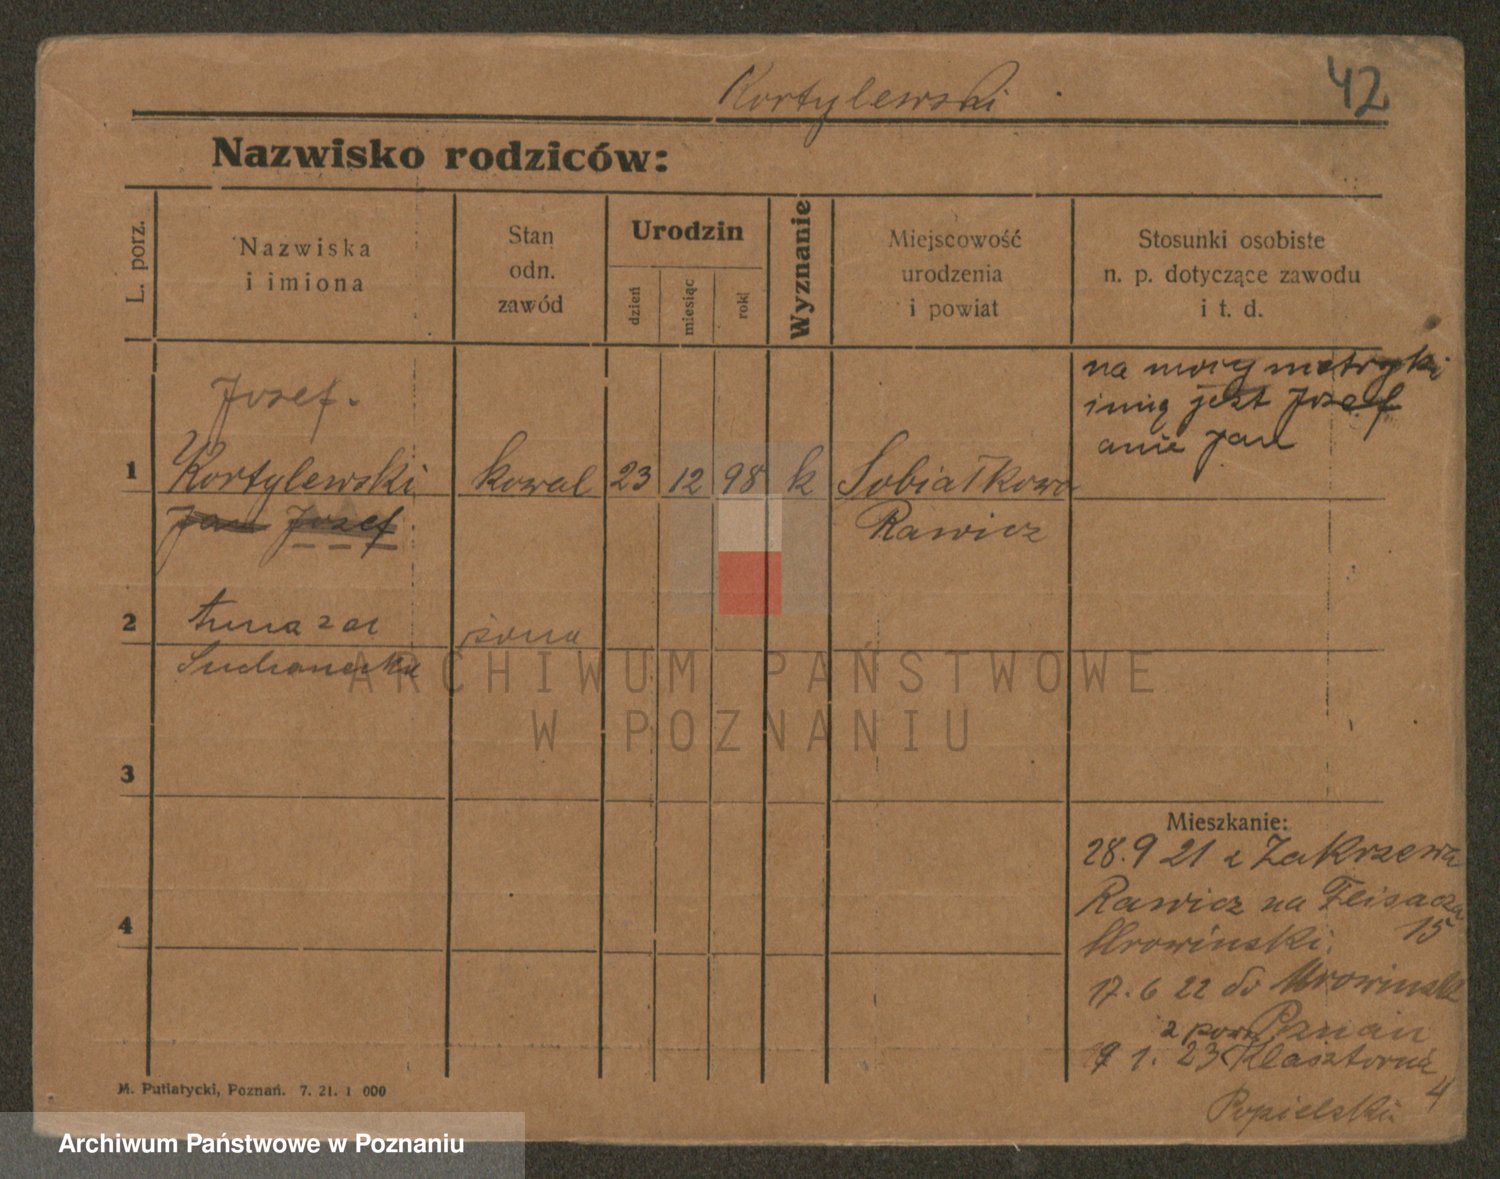 Kortylewski
42
Nazwisko rodziców:
L. porz.
Nazwiska
i imiona
Stan
odn.
zawód
Urodzin
dzień
miesiąc
rok
Wyznanie
Miejscowość
urodzenia
i powiat
Stosunki osobiste
n. p. dotyczące zawodu
i t. d.
Josef.
1
Kortylewski kowal 23 12 98 k Sobiałkowo
Jan Jozef
Rawicz
na moig metryki
imię jest Jozef
anie Jan
2
żona
Suchanecka
3
4
Mieszkanie:
28.9 21 z Zakrzewa
Rawicz na Flisacza
Mrowinski. 15
17.6 22 do Mrowinsk
z pow. Poznan
19 1. 23 Klasztorna
4
Popielski
M. Putiatycki, Poznań. 7. 21. 1 000
ARCHIWUM PAŃSTWOWE
W POZNANIU
Archiwum Państwowe w Poznaniu